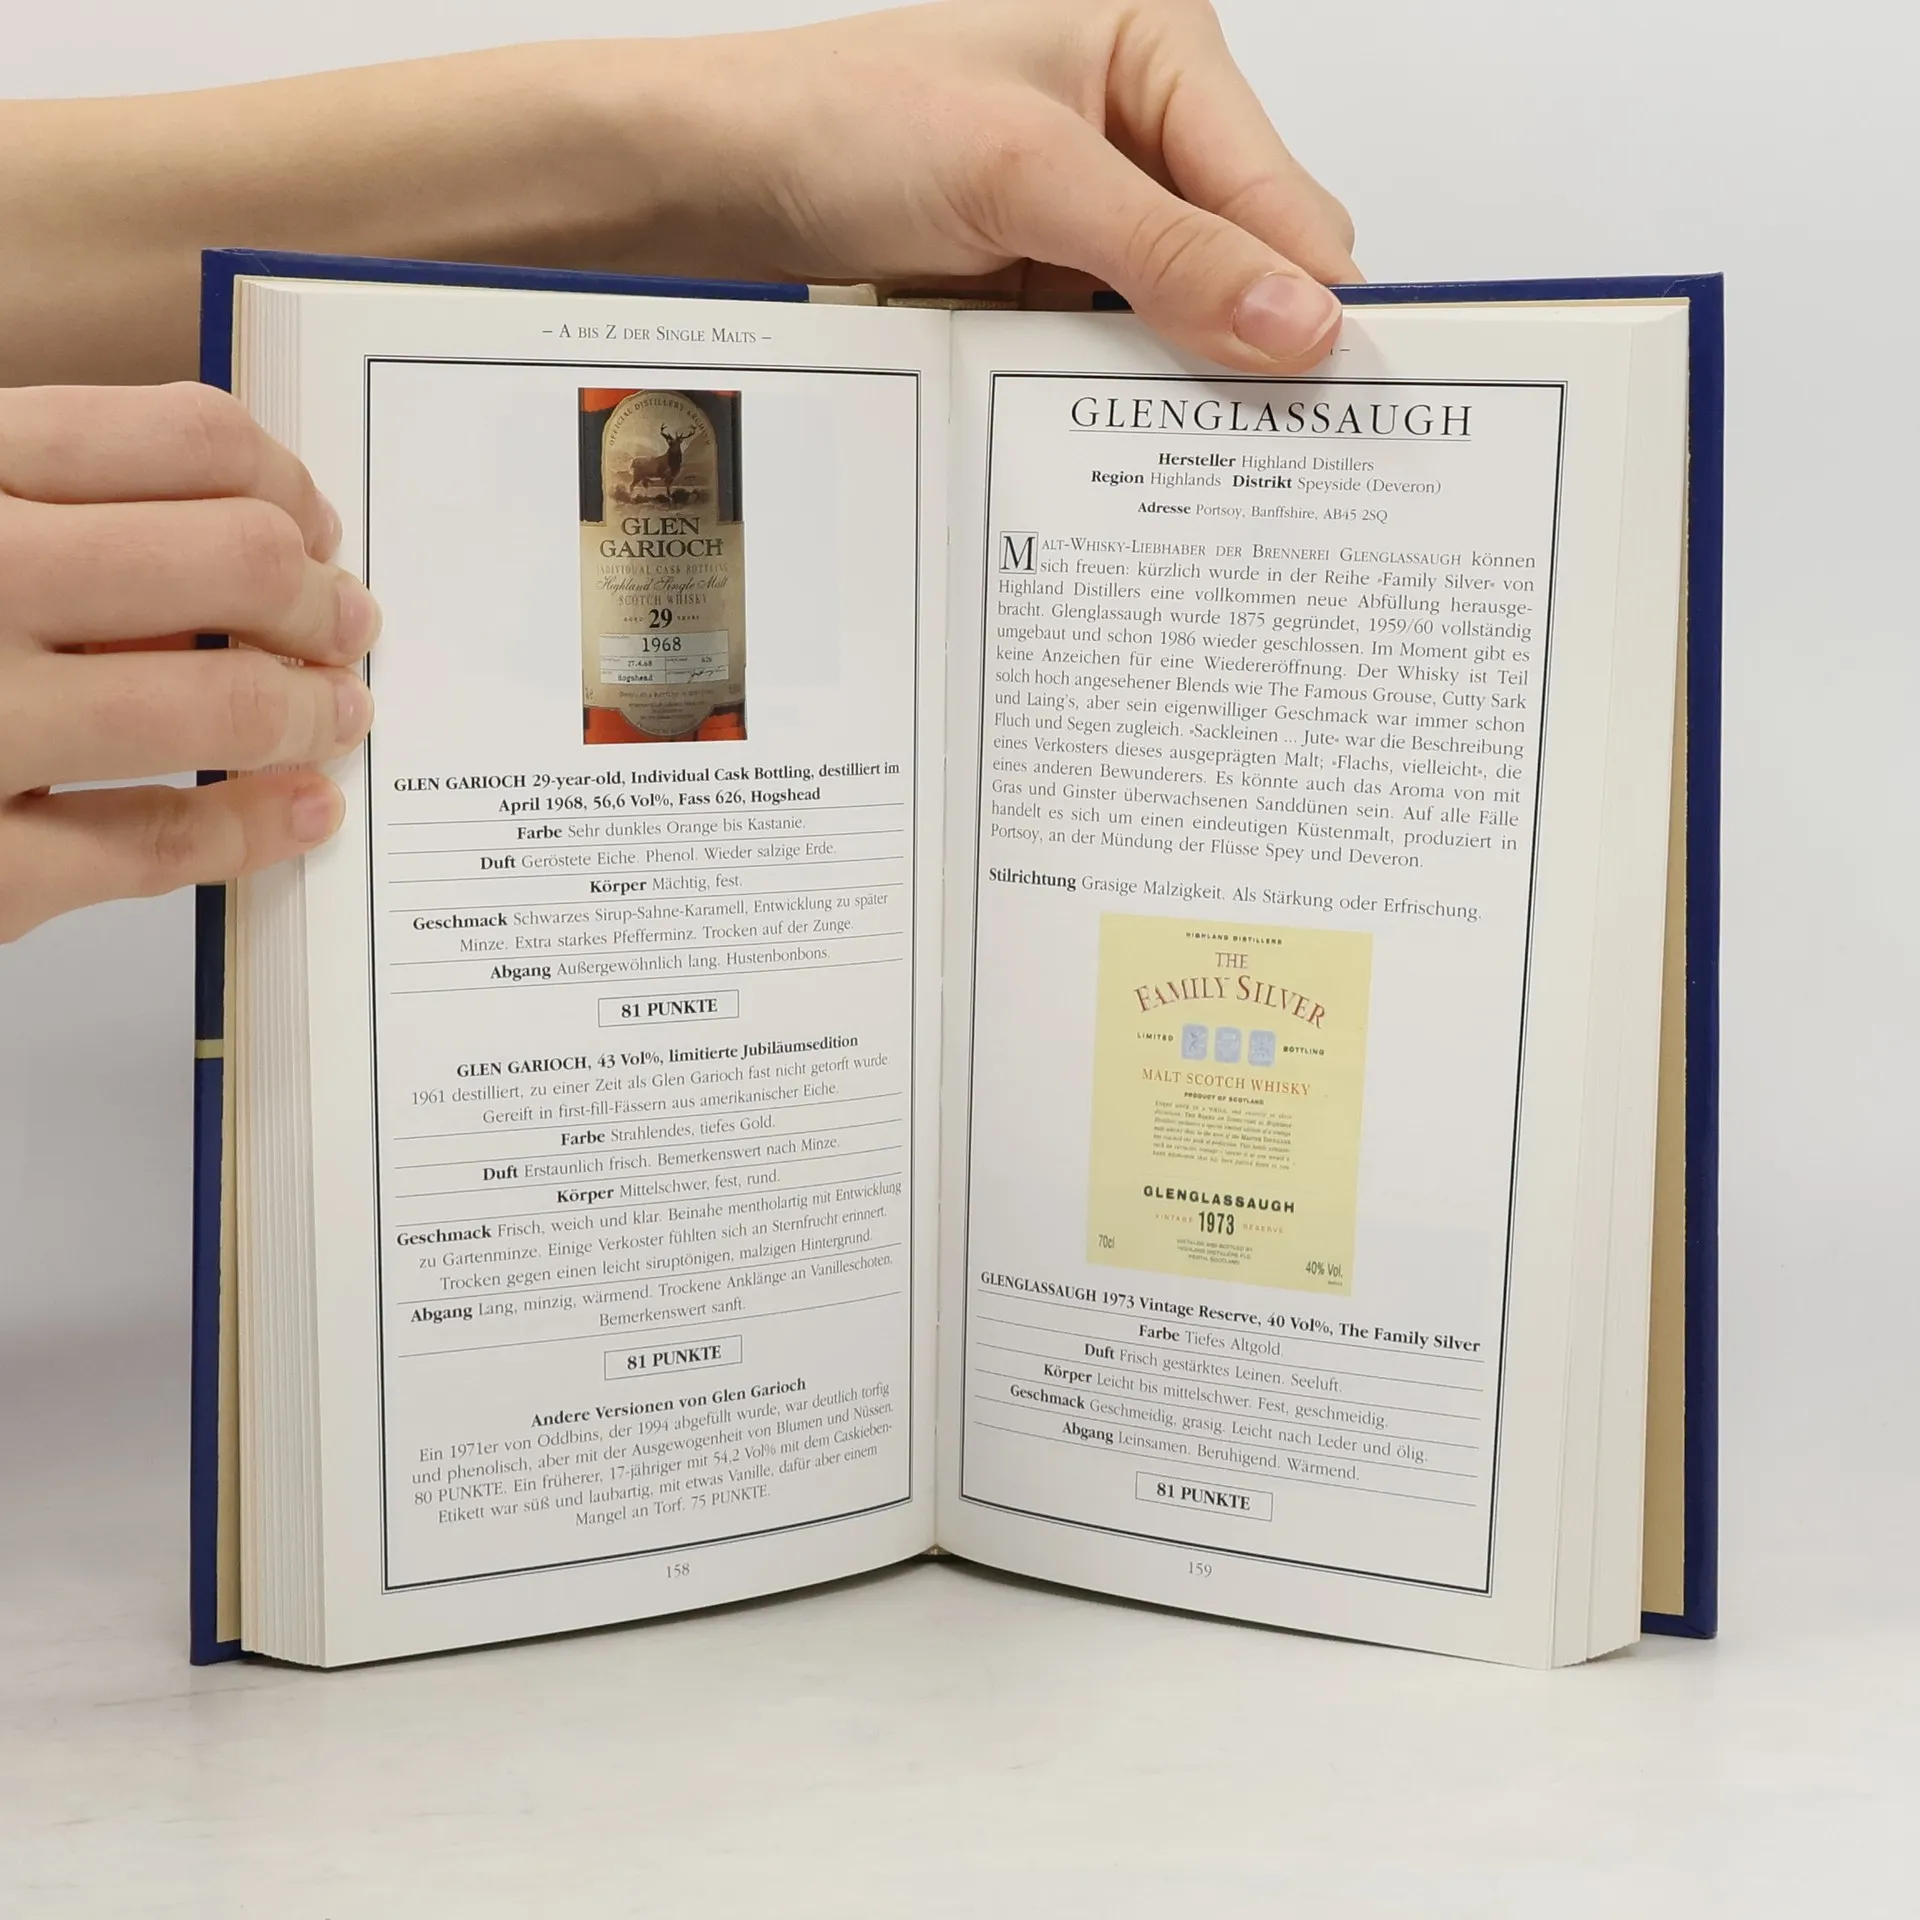 – A BIS Z DER SINGLE MALTS –
OFFICIAL DISTILLERY ARCHIVE
GLEN
GARIOCH
INDIVIDUAL CASK BOTTLING
Highland Single Malt
SCOTCH WHISKY
AGED 29 YEARS
1968
27.4.68 626
Hogshead
GLEN GARIOCH 29-year-old, Individual Cask Bottling, destilliert im
April 1968, 56,6 Vol%, Fass 626, Hogshead
Farbe Sehr dunkles Orange bis Kastanie.
Duft Geröstete Eiche. Phenol. Wieder salzige Erde.
Körper Mächtig, fest.
Geschmack Schwarzes Sirup-Sahne-Karamell, Entwicklung zu später
Minze. Extra starkes Pfefferminz. Trocken auf der Zunge.
Abgang Außergewöhnlich lang. Hustenbonbons.
81 PUNKTE
GLEN GARIOCH, 43 Vol%, limitierte Jubiläumsedition
1961 destilliert, zu einer Zeit als Glen Garioch fast nicht getorft wurde.
Gereift in first-fill-Fässern aus amerikanischer Eiche.
Farbe Strahlendes, tiefes Gold.
Duft Erstaunlich frisch. Bemerkenswert nach Minze.
Körper Mittelschwer, fest, rund.
Geschmack Frisch, weich und klar. Beinahe mentholartig mit Entwicklung
zu Gartenminze. Einige Verkoster fühlten sich an Sternfrucht erinnert.
Trocken gegen einen leicht siruptönigen, malzigen Hintergrund.
Abgang Lang, minzig, wärmend. Trockene Anklänge an Vanilleschoten.
Bemerkenswert sanft.
81 PUNKTE
Andere Versionen von Glen Garioch
Ein 1971er von Oddbins, der 1994 abgefüllt wurde, war deutlich torfig
und phenolisch, aber mit der Ausgewogenheit von Blumen und Nüssen.
80 PUNKTE. Ein früherer, 17-jähriger mit 54,2 Vol% mit dem Caskieben-
Etikett war süß und laubartig, mit etwas Vanille, dafür aber einem
Mangel an Torf. 75 PUNKTE.
158
GLENGLASSAUGH
Hersteller Highland Distillers
Region Highlands Distrikt Speyside (Deveron)
Adresse Portsoy, Banffshire, AB45 2SQ
MALT-WHISKY-LIEBHABER DER BRENNEREI GLENGLASSAUGH können
sich freuen: kürzlich wurde in der Reihe »Family Silver« von
Highland Distillers eine vollkommen neue Abfüllung herausge-
bracht. Glenglassaugh wurde 1875 gegründet, 1959/60 vollständig
umgebaut und schon 1986 wieder geschlossen. Im Moment gibt es
keine Anzeichen für eine Wiedereröffnung. Der Whisky ist Teil
solch hoch angesehener Blends wie The Famous Grouse, Cutty Sark
und Laing's, aber sein eigenwilliger Geschmack war immer schon
Fluch und Segen zugleich. »Sackleinen ... Jute« war die Beschreibung
eines Verkosters dieses ausgeprägten Malt; »Flachs, vielleicht«, die
eines anderen Bewunderers. Es könnte auch das Aroma von mit
Gras und Ginster überwachsenen Sanddünen sein. Auf alle Fälle
handelt es sich um einen eindeutigen Küstenmalt, produziert in
Portsoy, an der Mündung der Flüsse Spey und Deveron.
Stilrichtung Grasige Malzigkeit. Als Stärkung oder Erfrischung.
HIGHLAND DISTILLERS
THE
FAMILY SILVER
LIMITED BOTTLING
MALT SCOTCH WHISKY
PRODUCT OF SCOTLAND
GLENGLASSAUGH
VINTAGE 1973 RESERVE
70cl
40% Vol.
GLENGLASSAUGH 1973 Vintage Reserve, 40 Vol%, The Family Silver
Farbe Tiefes Altgold.
Duft Frisch gestärktes Leinen. Seeluft.
Körper Leicht bis mittelschwer. Fest, geschmeidig.
Geschmack Geschmeidig, grasig. Leicht nach Leder und ölig.
Abgang Leinsamen. Beruhigend. Wärmend.
81 PUNKTE
159